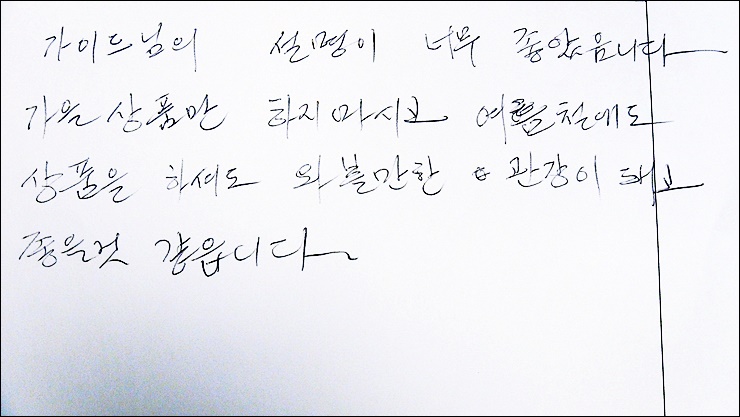 가이드님의 설명이 너무 좋았읍니다
가을상품만 하지마시고 여름철에도
상품을 하셔도 와볼만한 관광이 돼고
좋을것 같읍니다